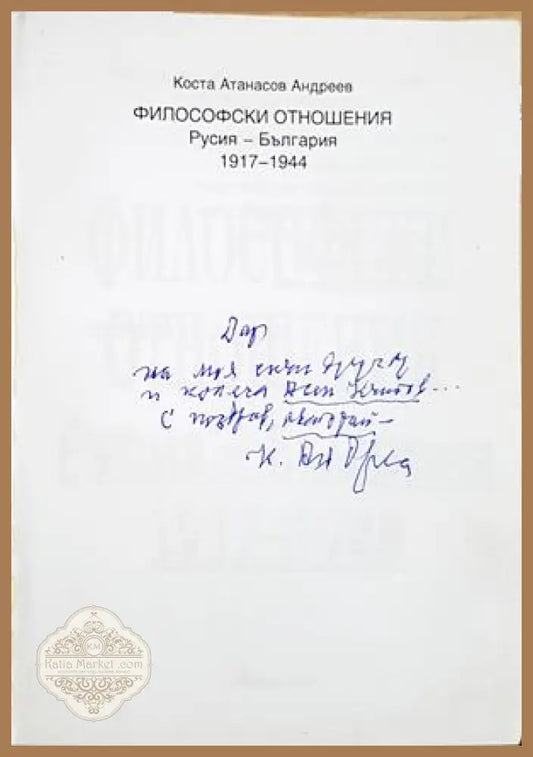 Коста Атанасов Андреев
ФИЛОСОФСКИ ОТНОШЕНИЯ
Русия – България
1917–1944
Дар
на моя скъп
и колега Асен
с поздрав,
К. Андреев
KM
Katia Market .com